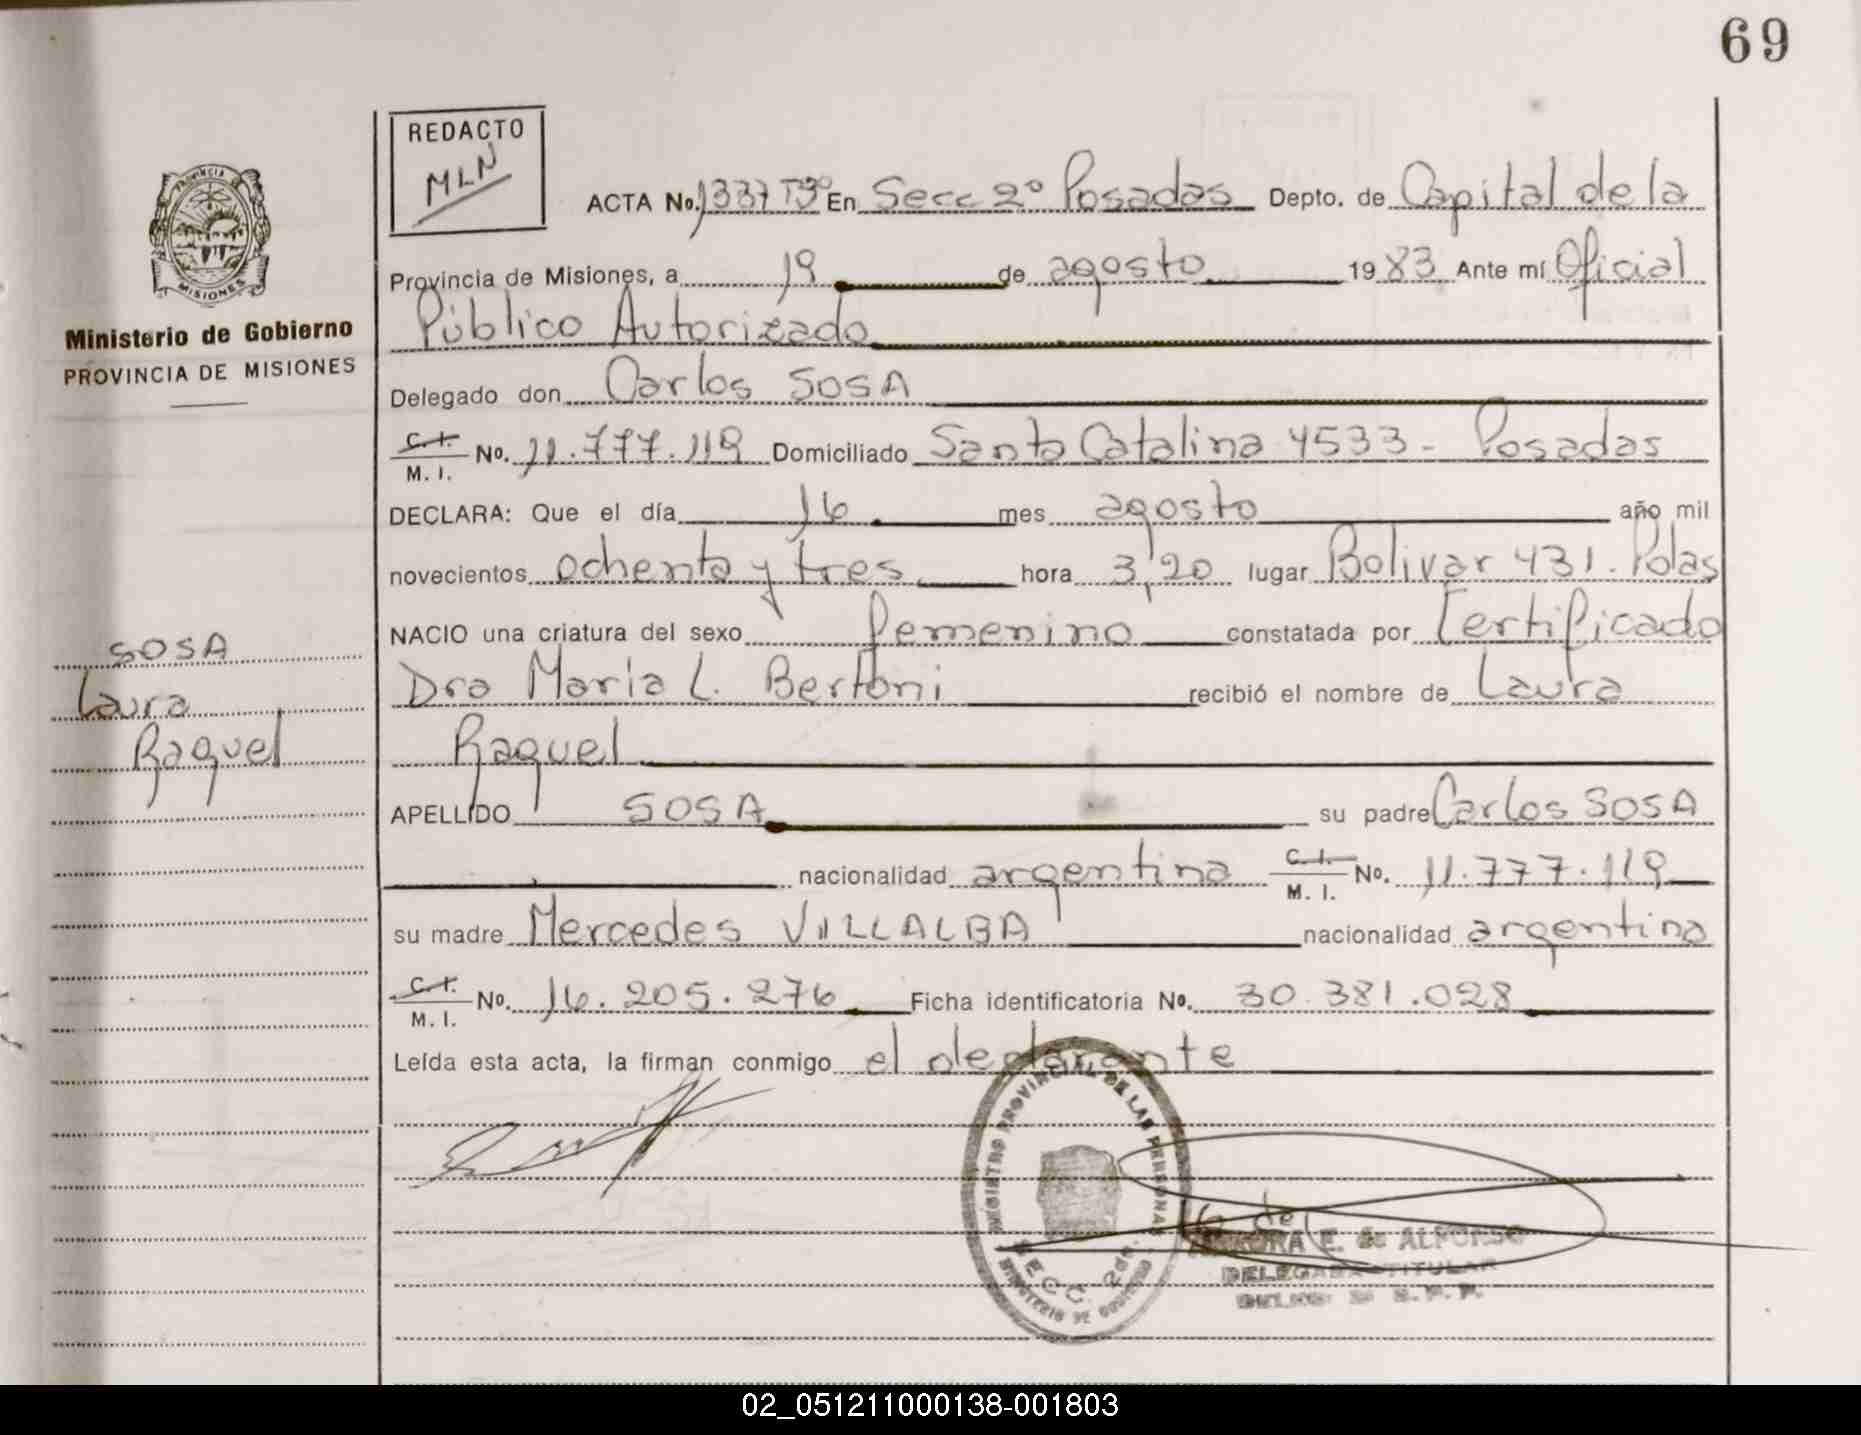 69
REDACTO
MLN
PROVINCIA DE
MISIONES
Ministerio de Gobierno
PROVINCIA DE MISIONES
ACTA No. 1337 Tº3 En Secc 2º Posadas Depto. de Capital de la
Provincia de Misiones, a 19 de agosto 1983 Ante mí Oficial
Público Autorizado
Delegado don Carlos SOSA
C. I.
M. I. No. 11.777.119 Domiciliado Santa Catalina 4533 - Posadas
DECLARA: Que el día 16 mes agosto año mil
novecientos ochenta y tres hora 3,20 lugar Bolivar 431. Pdas
NACIO una criatura del sexo femenino constatada por Certificado
Dra Maria L. Bertoni recibió el nombre de Laura
Raquel
APELLIDO SOSA su padre Carlos SOSA
nacionalidad argentina C. I.
M. I. No. 11.777.119
su madre Mercedes VILLALBA nacionalidad argentina
C. I.
M. I. No. 16.205.276 Ficha identificatoria No. 30.381.028
Leída esta acta, la firman conmigo el declarante
SOSA
Laura
Raquel
REGISTRO PROVINCIAL DE LAS PERSONAS
SECC. 2da.
MINISTERIO DE GOBIERNO
E. de ALFONSO
DELEGADA TITULAR
02_051211000138-001803